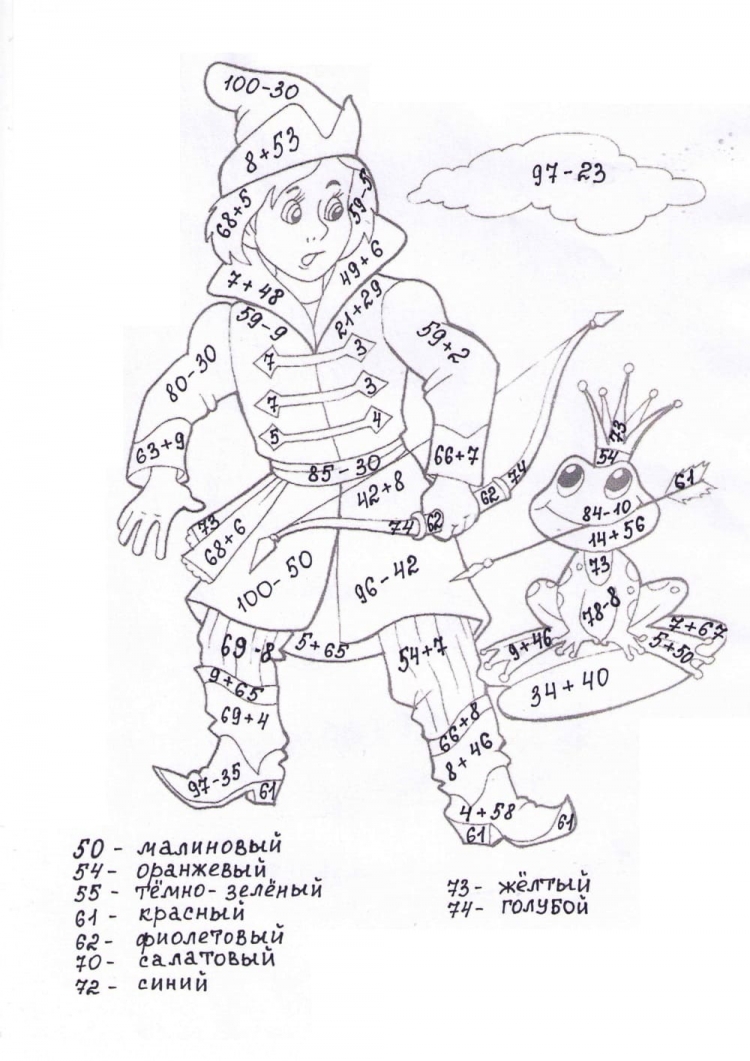 100-30
8+53
97-23
68+5
59-5
49+6
7+48
59-9
21+29
59+2
80-30
7
3
7
3
5
4
63+9
66+7
85-30
42+8
74
62
73
54
61
73
68+6
74
62
84-10
14+56
73
100-50
96-42
78-8
7+67
9+46
5+50
69-8
5+65
54+7
9+65
34+40
69+4
66+8
8+46
97-35
61
4+58
61
61
50 - малиновый
54 - оранжевый
55 - тёмно-зелёный
61 - красный
62 - фиолетовый
70 - салатовый
72 - синий
73- жёлтый
74- голубой